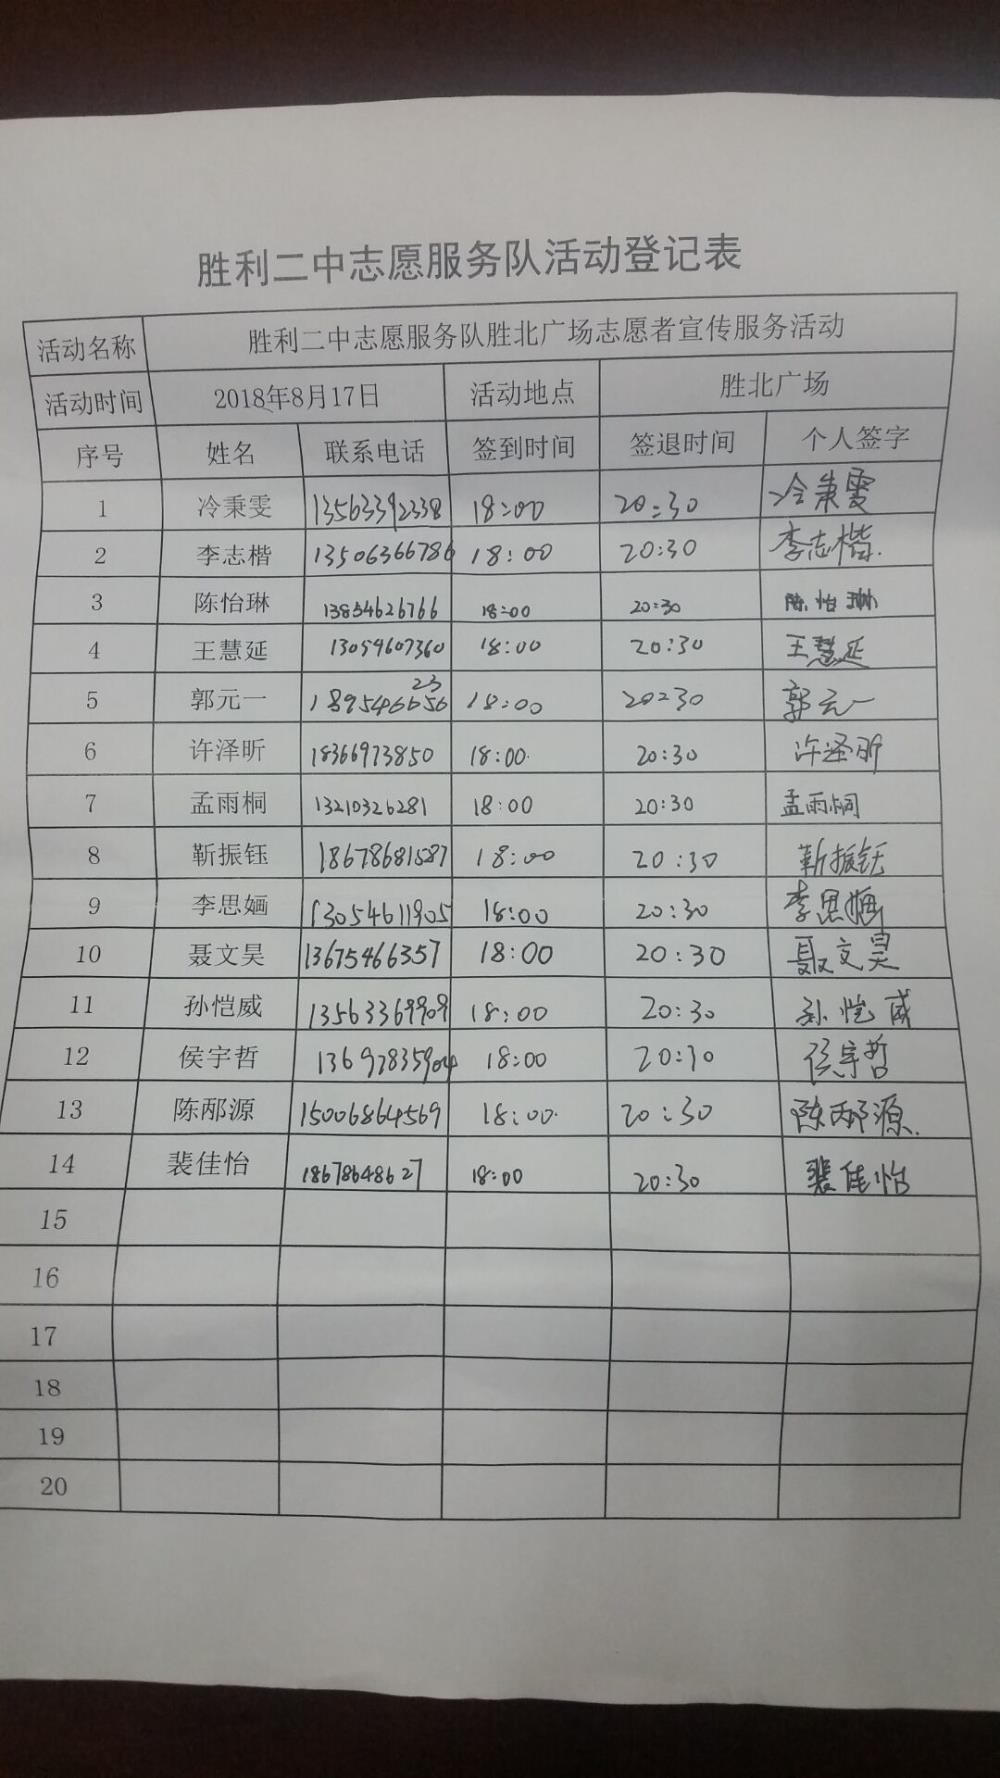 胜利二中志愿服务队活动登记表
活动名称 胜利二中志愿服务队胜北广场志愿者宣传服务活动
活动时间 2018年8月17日 活动地点 胜北广场
序号 姓名 联系电话 签到时间 签退时间 个人签字
1 冷秉雯 13563392338 18:00 20:30 冷秉雯
2 李志楷 13506366786 18:00 20:30 李志楷.
3 陈怡琳 13854626766 18:00 20:30 陈怡琳
4 王慧延 13054607360 18:00 20:30 王慧延
5 郭元一 18:00 20:30 郭元一
6 许泽昕 18366973850 18:00 20:30 许泽昕
7 孟雨桐 13210326281 18:00 20:30 孟雨桐
8 靳振钰 18678681587 18:00 20:30 靳振钰
9 李思婳 13054611905 18:00 20:30 李思婳
10 聂文昊 13675466357 18:00 20:30 聂文昊
11 孙恺威 18:00 20:30 孙恺威
12 侯宇哲 18:00 侯宇哲
13 陈邴源 15006864569 18:00 20:30 陈邴源.
14 裴佳怡 18678648627 18:00 20:30 裴佳怡
15
16
17
18
19
20